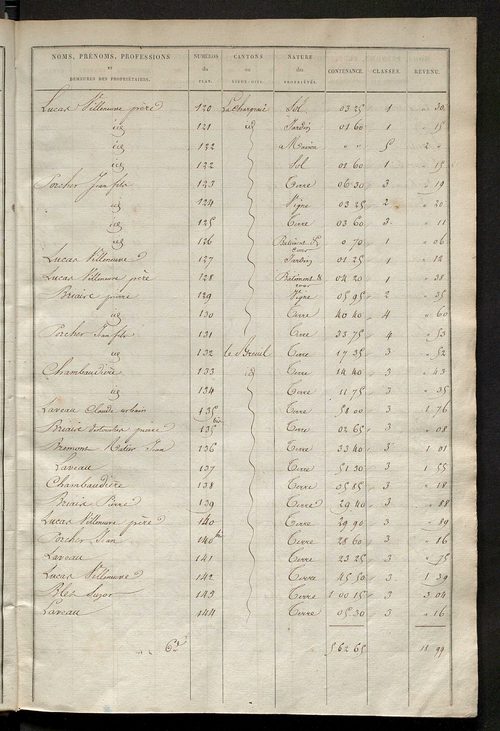 NOMS, PRÉNOMS, PROFESSIONS et DEMEURES DES PROPRIÉTAIRES. NUMÉROS du PLAN. CANTONS ou LIEUX-DITS. NATURE des PROPRIÉTÉS. CONTENANCE. CLASSES. REVENU.
Lucas Villeneuve père 120 Sol 03 25 1 " 30
id 121 id Jardin 01 60 1 " 15
id 122 Maison " " 5 2 "
id 122 Sol 01 60 1 " 15
Porcher Jean fils 123 Terre 06 30 3 " 19
id 124 Vigne 03 25 2 " 20
id 125 Terre 03 60 3 " 11
id 126 Batiment & cour 0 70 1 " 06
Lucas Villeneuve 127 Jardin 01 25 1 " 12
Lucas Villeneuve père 128 Batiment & cour 04 20 1 " 38
Briaire pierre 129 Vigne 05 95 2 " 35
id 130 Terre 40 40 4 " 60
Porcher Jean fils 131 Terre 33 75 4 " 53
id 132 le Breuil Terre 17 35 3 " 52
Chambaudière 133 id Terre 14 40 3 " 43
id 134 Terre 11 75 3 " 35
Laveau Claude urbain 135 Terre 51 00 3 1 76
Briaire pierre 135 bis Terre 02 65 3 " 08
Bremont Metier Jean 136 Terre 33 40 3 1 01
Laveau 137 Terre 51 30 3 1 55
Chambaudière 138 Terre 05 85 3 " 18
Briaire Pierre 139 Terre 29 40 3 " 88
Lucas Villeneuve père 140 Terre 29 90 3 " 89
Porcher Jean 140 bis Terre 28 60 3 " 16
Laveau 141 Terre 23 25 3 " 75
Lucas Villeneuve 142 Terre 45 50 3 1 39
Blet Suzor 143 Terre 1 00 15 3 3 04
Laveau 144 Terre 05 30 3 " 16
5 62 65 11 99